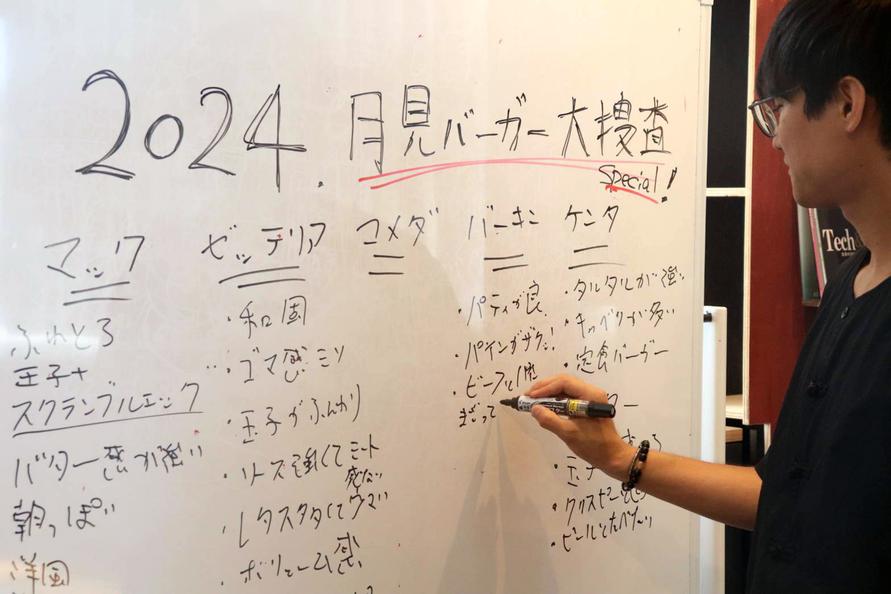 2024. 月見バーガー大捜査
Special!
マック
ふわとろ
玉子+
スクランブルエッグ
バター感が強い
朝っぽい
洋風
ゼッテリア
・和風
・ゴマ感
・玉子がふんわり
・ソース強くてミート
感ない
・レタス多くてウマい
・ボリューム感
コメダ
バーキン
・パティが良
・パインがザク
・ビーフ
まざって
ケンタ
・タルタルが強い
・キャベツが多い
・定食バーガー
ー
・玉子
・クリスピー
・ビールとたべたい
Tech